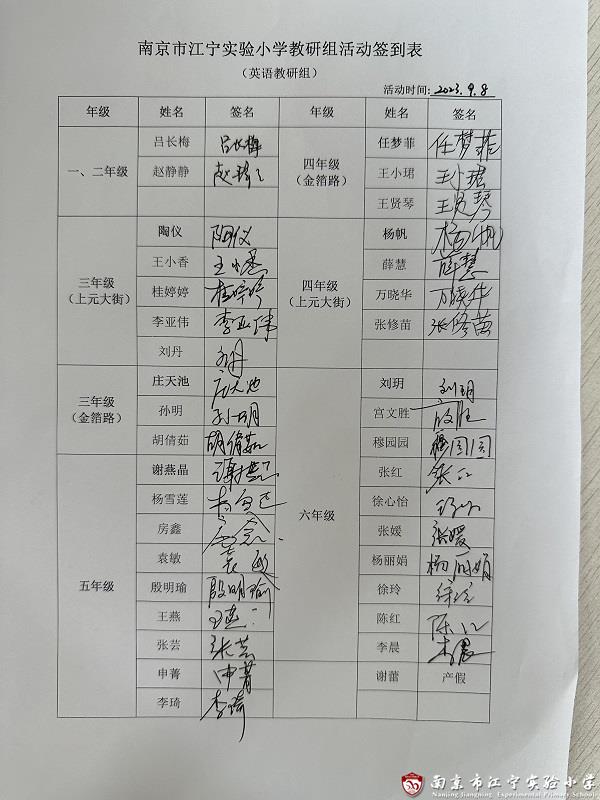 南京市江宁实验小学教研组活动签到表
（英语教研组）
活动时间: 2023.9.8
年级 姓名 签名 年级 姓名 签名
一、二年级 吕长梅 吕长梅 四年级（金箔路） 任梦菲 任梦菲
赵静静 赵静静 王小珺 王小珺
王贤琴 王贤琴
三年级（上元大街） 陶仪 陶仪 四年级（上元大街） 杨帆 杨帆
王小香 王小香 薛慧 薛慧
桂婷婷 桂婷婷 万晓华 万晓华
李亚伟 李亚伟 张修苗 张修苗
刘丹
三年级（金箔路） 庄天池 庄天池 六年级 刘玥 刘玥
孙明 孙明 宫文胜
胡倩茹 胡倩茹 穆园园 穆园园
五年级 谢燕晶 谢燕晶 张红 张红
杨雪莲 徐心怡
房鑫 张媛 张媛
袁敏 袁敏 杨丽娟 杨丽娟
殷明瑜 殷明瑜 徐玲 徐玲
王燕 王燕 陈红 陈红
张芸 张芸 李晨 李晨
申菁 申菁 谢蕾 产假
李琦 李琦
南京市江宁实验小学
Nanjing Jiangning Experimental Primary School